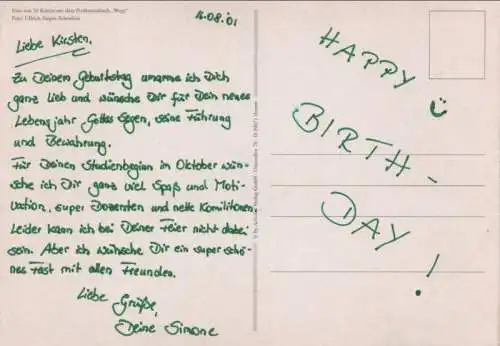 Eine von 30 Karten aus dem Postkartenbuch „Wege“
Foto: Ullrich
16.08.'01
Liebe Kirsten,
Zu Deinem Geburtstag umarme ich Dich
ganz lieb und wünsche Dir für Dein neues
Lebensjahr Gottes Segen, seine Führung
und Bewahrung.
Für Deinen Studienbeginn im Oktober wün-
sche ich Dir ganz viel Spaß und Moti-
vation, super Dozenten und nette Komilitonen.
Leider kann ich bei Deiner Feier nicht dabei
sein. Aber ich wünsche Dir ein super schö-
nes Fest mit allen Freunden.
Liebe Grüße,
Deine Simone
HAPPY
BIRTH-
DAY!